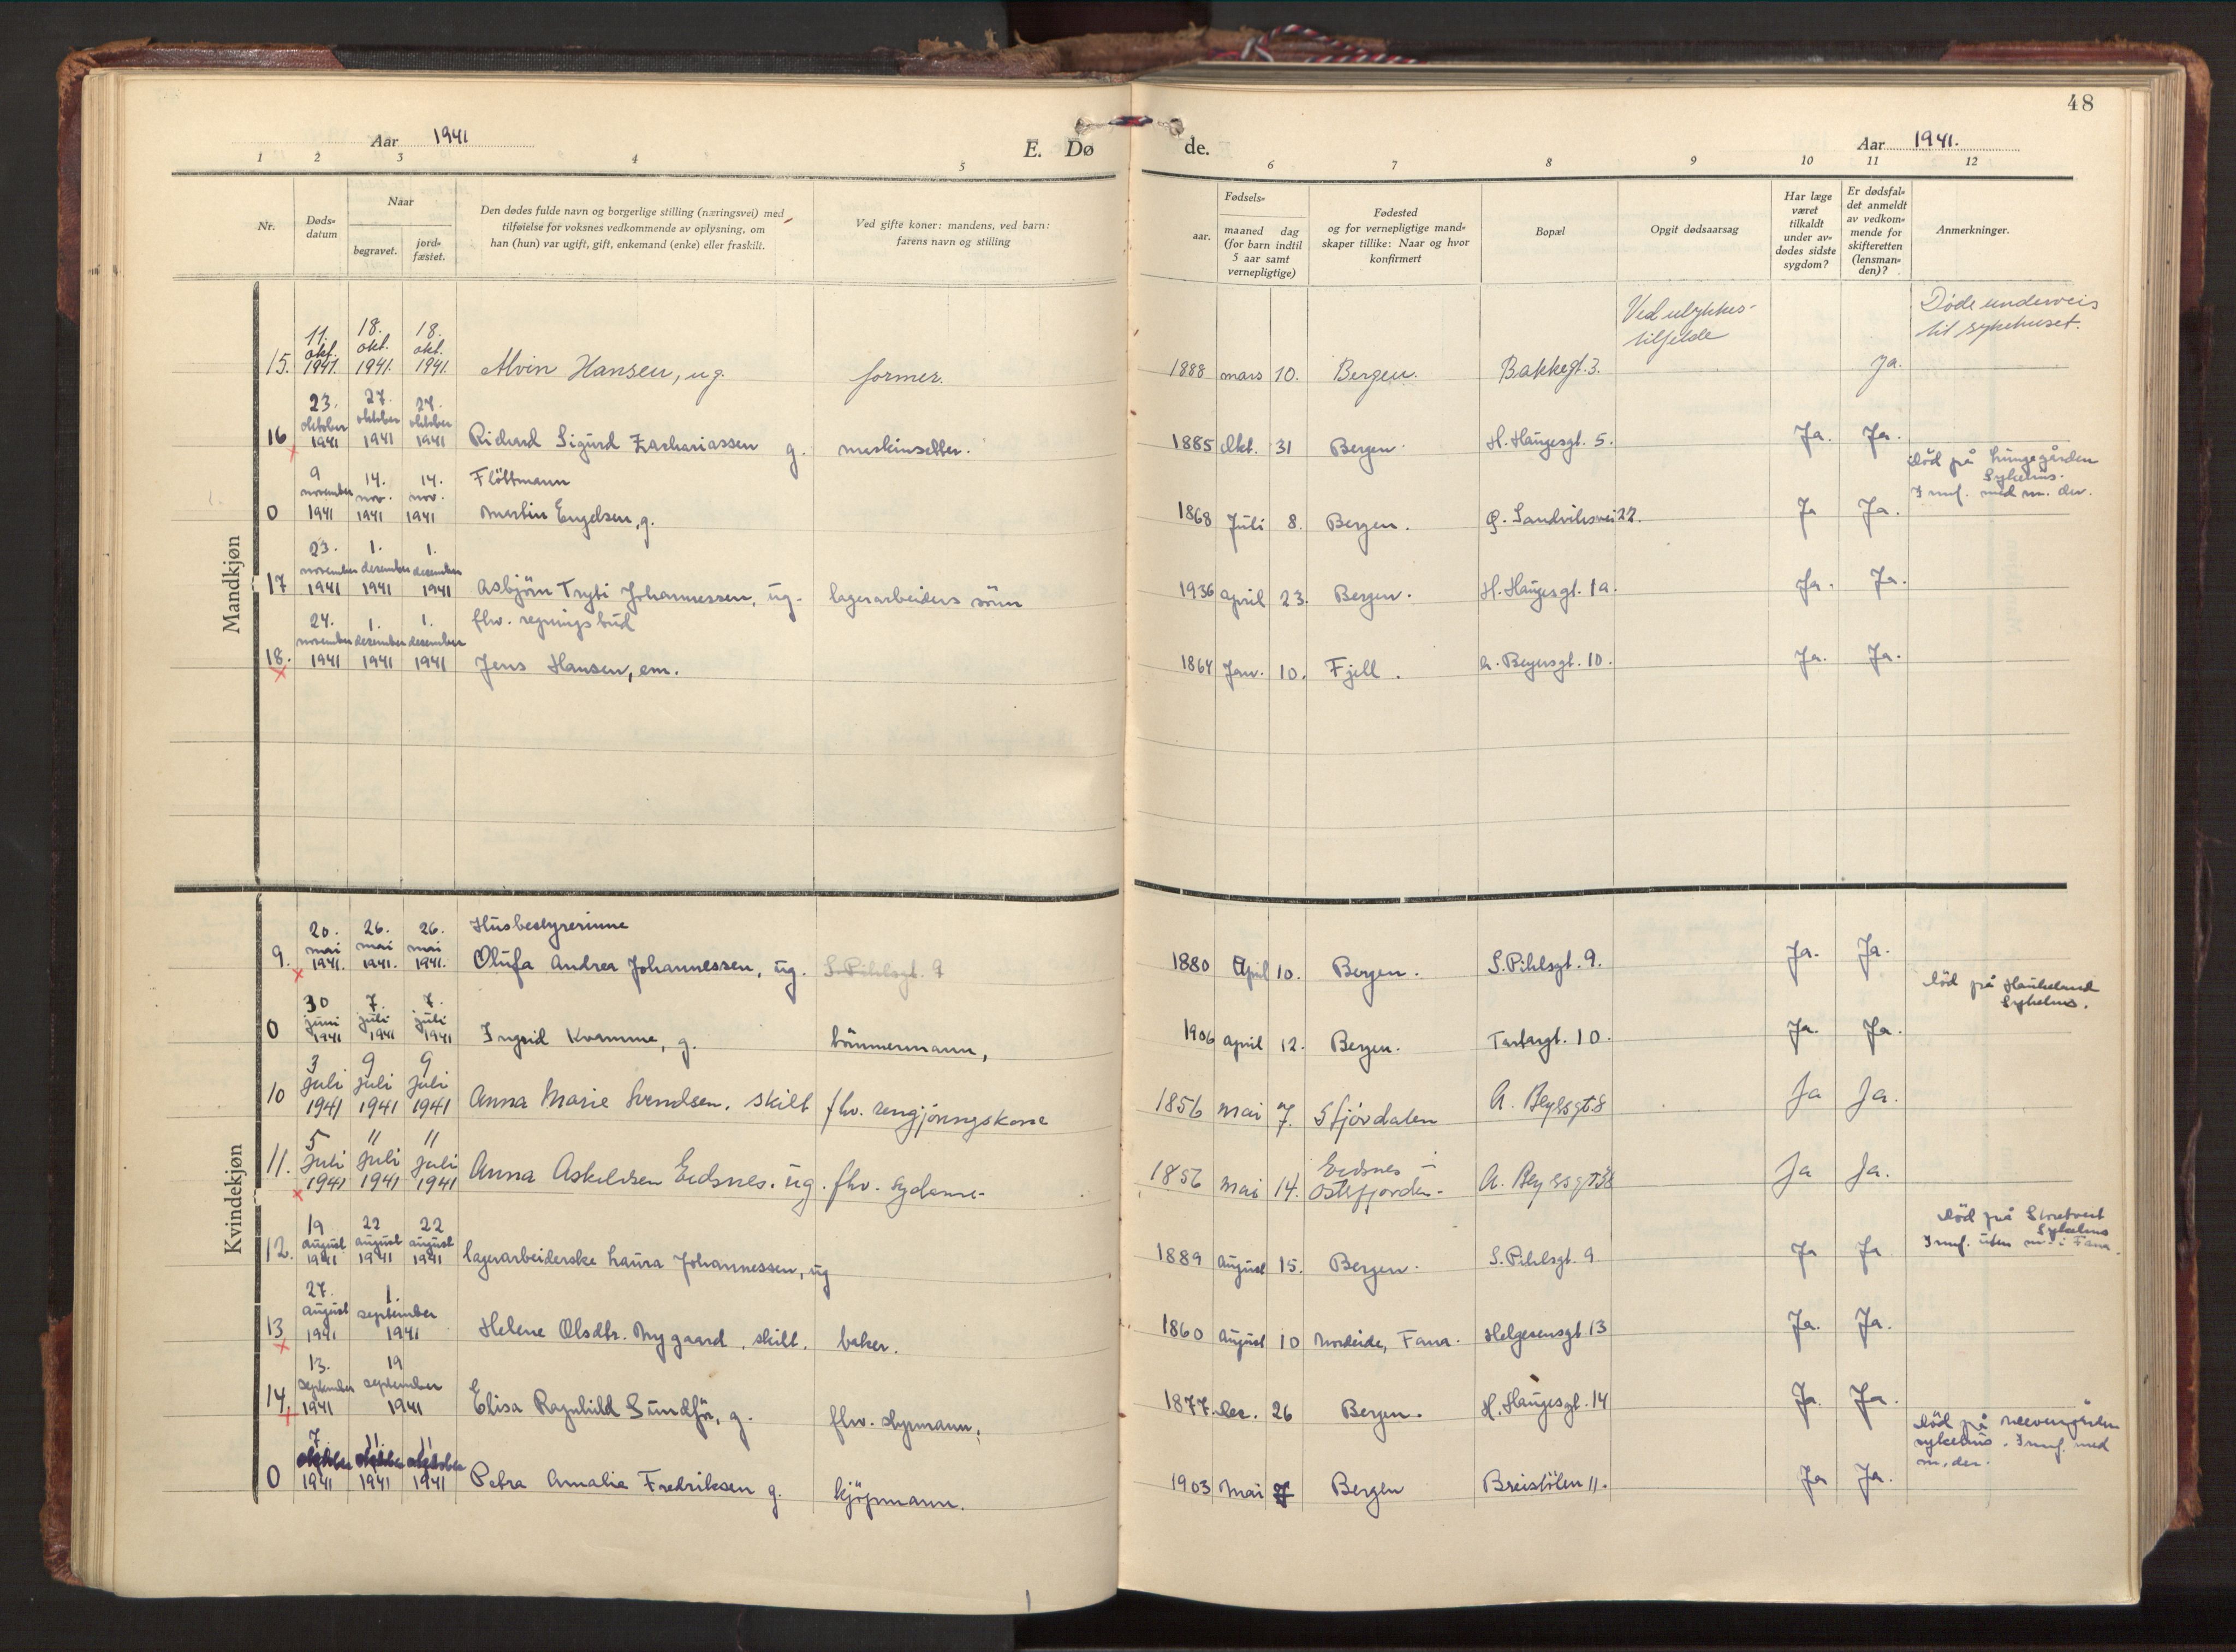 48
Aar 1941
E. Dø
de.
Aar 1941.
1 2 3 4 5
6 7 8 9 10 11 12
Nr.
Døds-
datum
Naar
begravet.
jord-
fæstet.
Den dødes fulde navn og borgerlige stilling (næringsvei) med
tilføielse for voksnes vedkommende av oplysning, om
han (hun) var ugift, gift, enkemand (enke) eller fraskilt.
Ved gifte koner: mandens, ved barn:
farens navn og stilling
Fødsels-
aar.
maaned
(for barn indtil
5 aar samt
vernepligtige)
dag
Fødested
og for vernepligtige mand-
skaper tillike: Naar og hvor
konfirmert
Bopæl
Opgit dødsaarsag
Har læge
været
tilkaldt
under av-
dødes sidste
sygdom?
Er dødsfal-
det anmeldt
av vedkom-
mende for
skifteretten
(lensman-
den)?
Anmerkninger.
Mandkjøn
11. 18. 18.
okt. okt. okt.
15. 1941. 1941. 1941. Alvin Hansen, ug. former. 1888 mars 10. Bergen. Bakkegt. 3.
Ved ulykkes-
tilfelde
Ja.
Døde underveis
til sykehuset.
23. 27. 27.
oktober oktober oktober
16 1941 1941 1941 Richard Sigurd Zachariassen g. maskinsetter. 1885 Okt. 31 Bergen. H. Haugesgt. 5. Ja. Ja.
9 14. 14. Flöttmann
november nov. nov.
0 1941 1941 1941 Martin Engelsen, g. 1868 Juli 8. Bergen. Ø. Sandviksvei 22. Ja Ja.
död på Lungegården
Sykehus.
Innf. med nr. der.
23. 1. 1.
november desember desember
17 1941 1941 1941 Asbjörn Trygvi Johannessen, ug. lagerarbeiders sönn 1936 april 23. Bergen. H. Haugesgt. 1a. Ja. Ja.
24. 1. 1. fhv. regningsbud
november desember desember
18. 1941 1941 1941 Jens Hansen, em. 1864 Jan. 10. Fjell. A. Beyersgt. 10. Ja. Ja.
Kvindekjøn
20. 26. 26. Husbestyrerinne
mai mai mai
9. 1941. 1941. 1941. Olufa Andrea Johannessen, ug. S. Pihlsgt. 9 1880 April 10. Bergen. S. Pihlsgt. 9. Ja. Ja.
30 7. 7.
juni juli juli
0 1941 1941 1941 Ingrid Kvamme, g. tömmermann, 1906 april 12. Bergen. Tartargt. 10. Ja. Ja.
död på Haukeland
Sykehus.
3 9 9
juli juli juli
10 1941 1941 1941 Anna Marie Svendsen. skilt fhv. rengjøringskone 1856 mai 7. Stjørdalen A. Beyersgt. 8 Ja Ja.
5 11 11
juli juli juli
11. 1941 1941 1941 Anna Askeldsen Eidsnes. ug. fhv. sydame- 1856 mai 14. Eidsnes i
Osterfjorden. Ja Ja.
19 22 22
august august august
12. 1941 1941 1941 lagerarbeiderske Laura Johannessen, ug 1889 august 15. Bergen. S. Pihlsgt. 9 Ja Ja
död på Storetveit
Sykehus
Innf. uten nr. i Fana.
27. 1.
august september
13 1941 1941 Helene Olsdtr. Nygaard. skilt. baker. 1860 august 10 Nordeide, Fana. Helgesensgt 13 Ja. Ja.
13. 19
september september
14. 1941 1941 Elisa Ragnhild Sundför, g. fhv. styrmann. 1877 des. 26 Bergen. H. Haugesgt. 14 Ja. Ja.
7. 11. 11
oktober oktober oktober
0 1941 1941 1941 Petra Amalia Fredriksen g. kjöpmann. 1903 Mai 7 Bergen Breistölen 11. Ja Ja.
död på Neevengården
sykehus. Innf. med
nr. der.